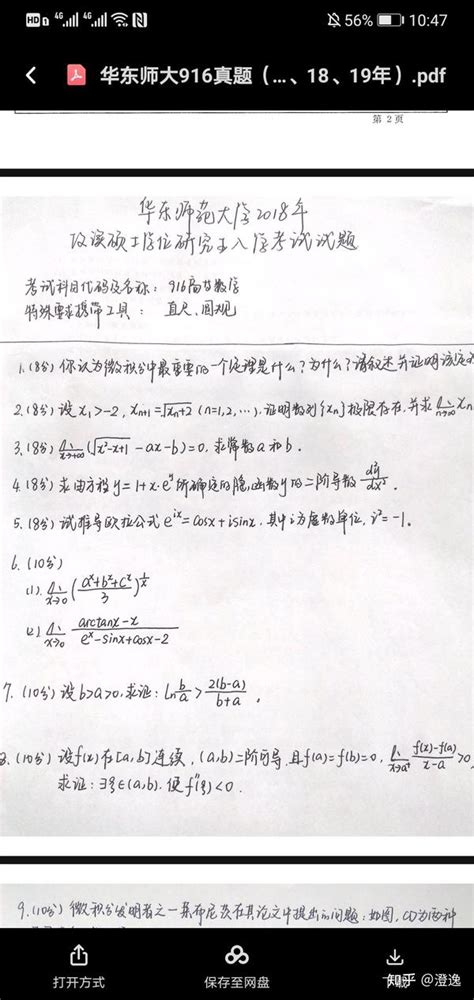 HD 4G 4G 56% 10:47
华东师大916真题（...、18、19年）.pdf
第 2 页
华东师范大学2018年
攻读硕士学位研究生入学考试试题
考试科目代码及名称：916高等数学
特殊要求携带工具：直尺、圆规
1.(8分) 你认为微积分中最重要的一个定理是什么？为什么？请叙述并证明该定
2.(8分) 设 x₁>-2, xₙ₊₁=√(xₙ+2) (n=1,2,…), 证明数列{xₙ}极限存在，并求 lim n→∞ xₙ
3.(8分) lim x→+∞ (√(x²-x+1) -ax-b)=0, 求常数a和b.
4.(8分) 求由方程 y=1+x·e^y 所确定的隐函数y的二阶导数 d²y/dx².
5.(8分) 试推导欧拉公式 e^{ix}=cosx+isinx, 其中i为虚数单位, i²=-1。
6.(10分)
(1). lim x→0 ((a^x+b^x+c^x)/3)^{1/x}
(2) lim x→0 (arctanx-x)/(e^x-sinx+cosx-2)
7.(10分) 设 b>a>0, 求证: ln b/a > 2(b-a)/(b+a) .
8.(10分) 设f(x)在[a,b]连续, (a,b)二阶可导, 且f(a)=f(b)=0, lim x→a⁺ (f(x)-f(a))/(x-a)>0,
求证: ∃ξ∈(a,b). 使f''(ξ)<0.
9.(10分) 微积分发明者之一莱布尼茨在其论文中提出的问题：如图，CD为两种
打开方式
保存至网盘
下载
知乎 @澄逸